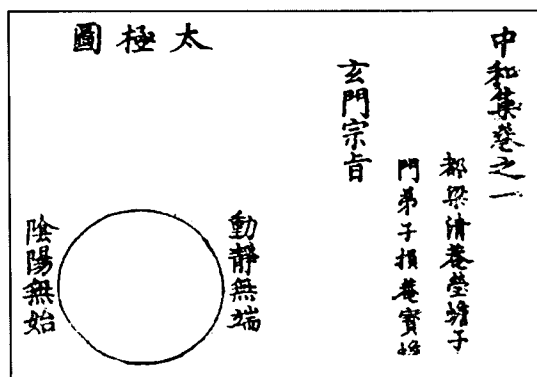 中和集卷之一
都梁清菴瑩蟾子
門弟子損菴寶蟾
玄門宗旨
太極圖
動靜無端
陰陽無始